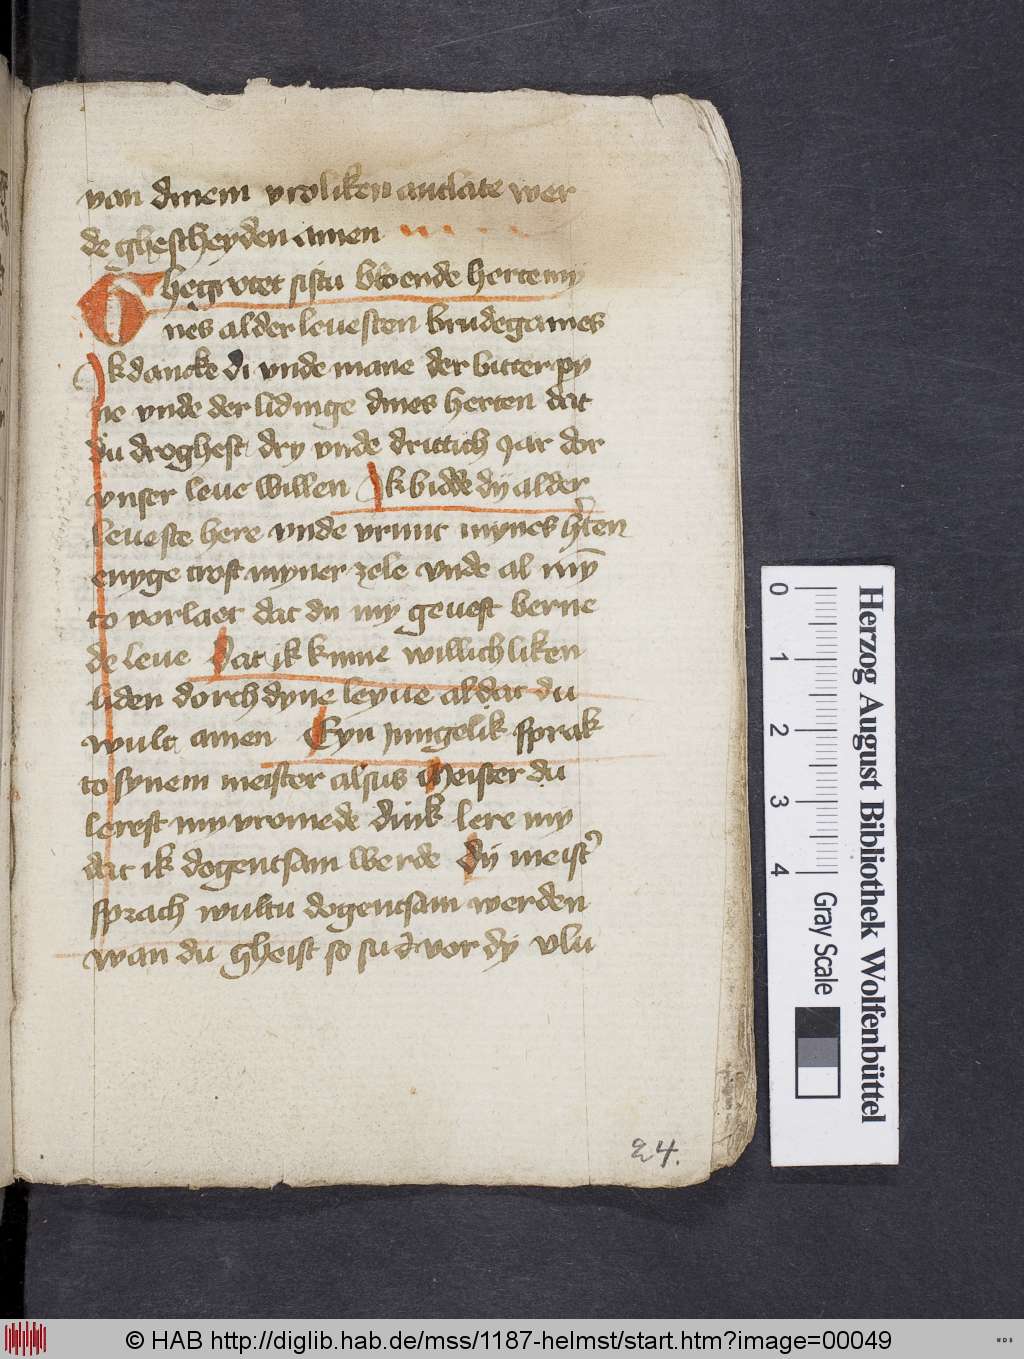 van dinem vroliken antlate wer
de ghescheyden amen
Ghegrutet sistu bloende herte my
nes alder leuesten brudegames
Ik dancke di vnde mane der bitter py
ne vnde der lidinge dines herten dat
du droghest dry vnde drittich Jar dor
vnser leue willen Ik bidde dy alder
leueste here vnde vrunt mynes h'ten
enyge trost myner zele vnde al my̅
to vorlaet dat du my geuest berne
de leue Dat ik kunne willichliken
liden dorch dyne leyue al dat du
wult amen Eyn Jungelik sprak
to synem meister alsus Meister du
lerest my vromede dink lere my
dat ik dogentsam werde Dy meist'
sprach wultu dogentsam werden
wan du gheist so su vor dy vlu
24.
Herzog August Bibliothek Wolfenbüttel
0 1 2 3 4
Gray Scale
© HAB http://diglib.hab.de/mss/1187-helmst/start.htm?image=00049